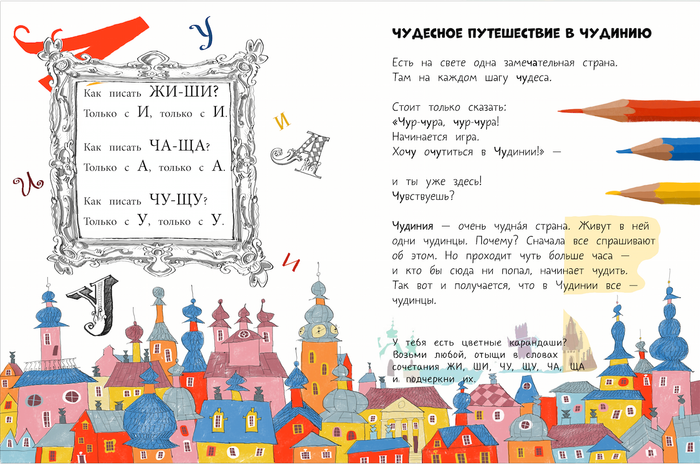 У
Как писать ЖИ-ШИ?
Только с И, только с И.
Как писать ЧА-ЩА?
Только с А, только с А.
Как писать ЧУ-ЩУ?
Только с У, только с У.
И
А
И
И
Ч
ЧУДЕСНОЕ ПУТЕШЕСТВИЕ В ЧУДИНИЮ
Есть на свете одна замечательная страна.
Там на каждом шагу чудеса.
Стоит только сказать:
«Чур-чура, чур-чура!
Начинается игра.
Хочу очутиться в Чудинии!» —
и ты уже здесь!
Чувствуешь?
Чудиния — очень чудна́я страна. Живут в ней
одни чудинцы. Почему? Сначала все спрашивают
об этом. Но проходит чуть больше часа —
и кто бы сюда ни попал, начинает чудить.
Так вот и получается, что в Чудинии все —
чудинцы.
У тебя есть цветные карандаши?
Возьми любой, отыщи в словах
сочетания ЖИ, ШИ, ЧУ, ЩУ, ЧА, ЩА
и подчеркни их.